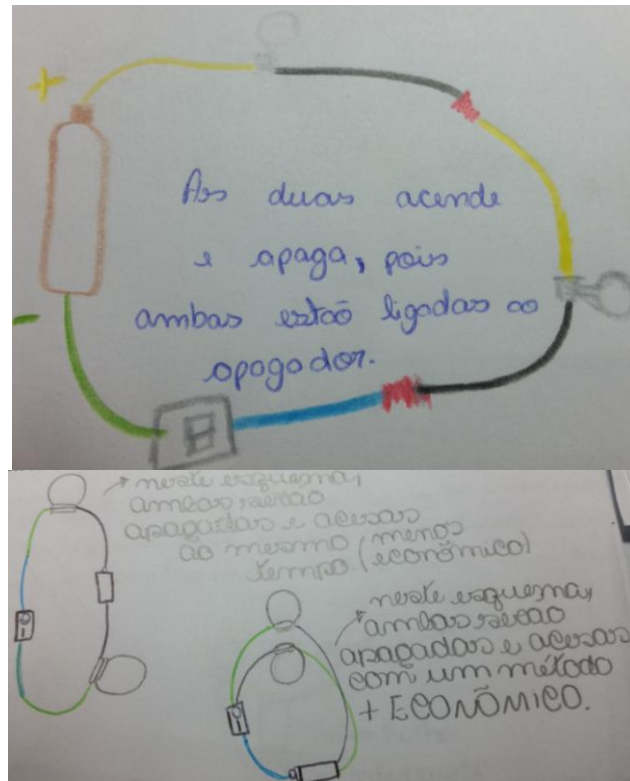 +
As duas acende
e apaga, pois
ambas estão ligadas ao
apagador.
-
neste esquema,
ambas serão
apagadas e acesas
ao mesmo (menos
tempo. econômico)
neste esquema,
ambas serão
apagadas e acesas
com um método
+ ECONÔMICO.